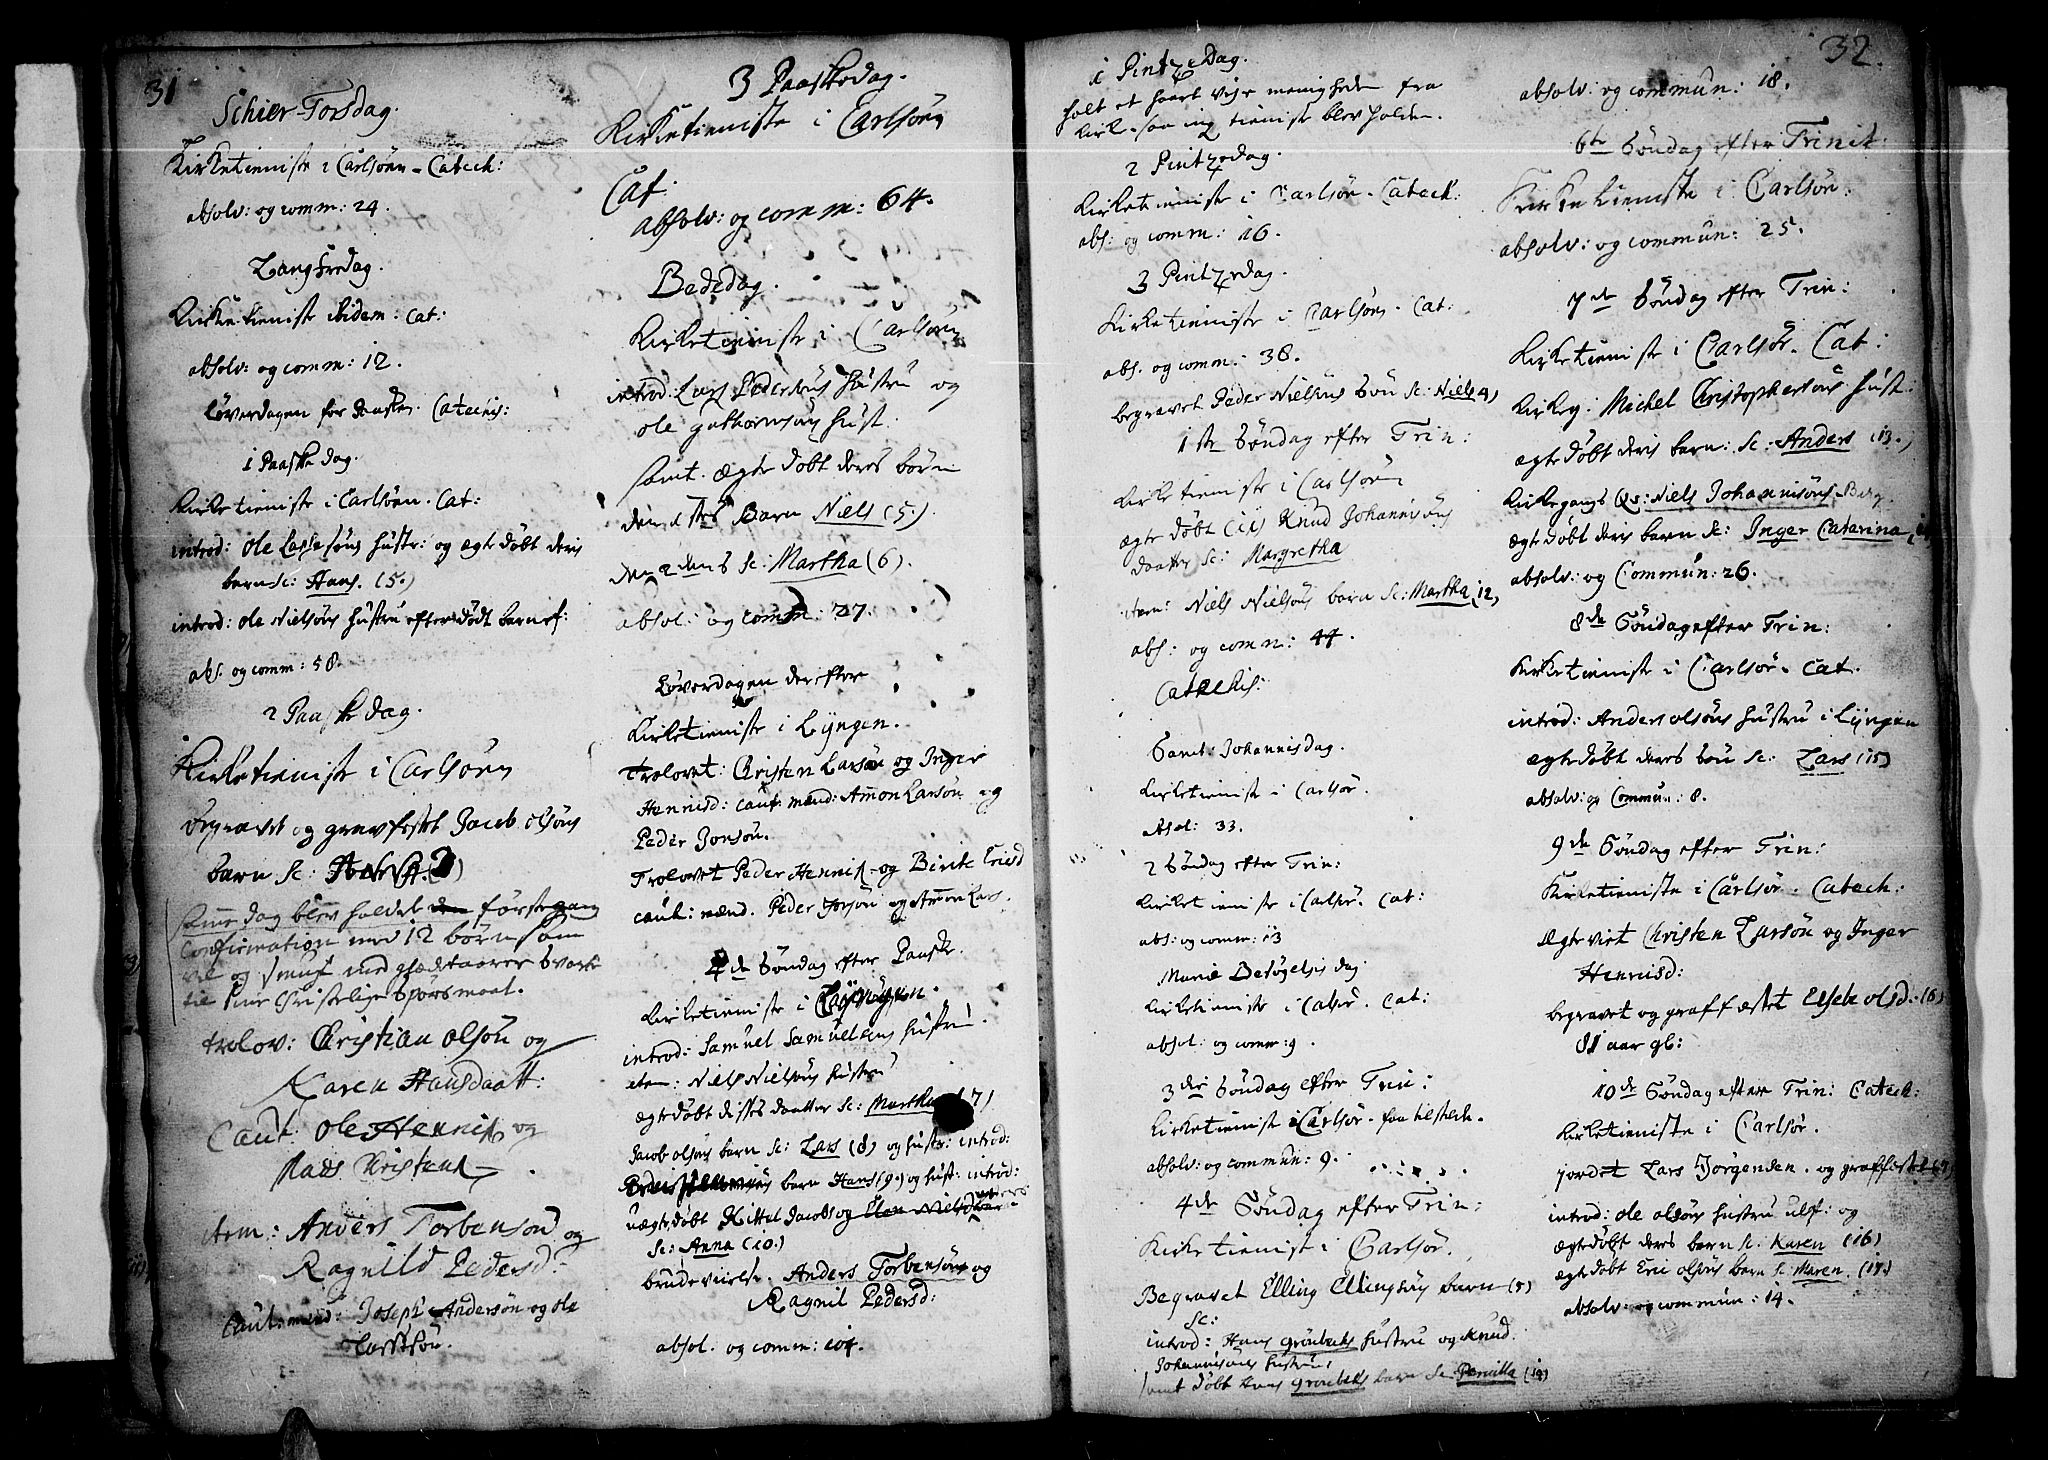 31
Schier-Torsdag.
Kirketieniste i Carlsöen - Catech:
absolv: og comm: 24.
Langfredag.
Kirketieniste ibidem: cat:
absolv: og comm: 12.
Löverdagen for Paaske. Catechis:
1 Paaske dag.
Kirketieniste i Carlsöen. Cat:
introd: Ole Lassesöns hustr: og ægte döbt deris
barn sc: Hans. (5.)
introd: Ole Nielsöns hustru efter dödt barn
abs. og comm: 58.
2 Paaske dag.
Kirketieniste i Carlsöen
begravet og gravfestet Jacob Olsöns
barn sc:
samme dag blev holdet den förste gang
Confirmation med 12 börn som
vel og med glædetaarer svarte
til Christelige Spörsmaal.
trolov: Christian Olsön og
Karen Hansdaatt:
Caut: Ole Hennis og
Mads Christens
item: Anders Torbensön og
Ragnild Pedersd:
Caut: mænd: Joseph Andersön og Ole
Larssön.
3 Paaskedag.
Kirketieniste i Carlsöen
Cat:
absolv: og comm: 64.
Bededag.
Kirketieniste i Carlsöen
introd: Lars Pedersöns hustru og
Ole Guthormsöns hust:
samt. ægte döbt deres börn
den Barn Niels (5).
den 2dens sc: Martha (6).
absol: og comm: 27.
Löverdagen derefter
Kirketieniste i Lÿngen.
Trolovet: Christen Larsön og Inger
Hennisd: caut. mænd: Ammon Larsön og
Peder Jonsön.
Trolovet Peder Hennis og Birite
caut: mænd. Peder Jonsön og Ammon Lars.
4de Söndag efter Paaske.
Kirketieniste i Lÿngen.
introd: Samuel Samuelsens hustru.
item: Niels Nielsöns hustru
ægte döbt disses daatter sc: Martha (7)
Jacob Olsöns barn sc: Lars (8) og hustr: introd:
barn Hans (9.) og hust: introd:
uægte döbt Kittel Jacobs og Elen Nielsd
sc: Anna (10.)
brudevielse. Anders Torbensöns og
Ragnil Pedersd:
absol: og comm: 104.
32.
1 Pintzedag.
holt et haart veir menigheden fra
Kirke saa ing tieniste blev holden.
2 Pintzedag.
Kirketieniste i Carlsör - Catech:
abs: og comm: 16.
3 Pintzedag.
Kirketieniste i Carlsöen - Cat:
abs. og comm: 38.
begravet Peder Nielsöns Sön sc: Niels 4)
1ste Söndag efter Trin:
Kirketieniste i Carlsöen
ægte döbt Knud Johannisöns
daatter sc: Margretha
item: Niels Nielsöns barn sc: Martha (12)
abs: og comm: 44.
Catechis:
Sanct: Johannisdag.
Kirketieniste i Carlsör.
Absol: 33.
2 Söndag efter Trin:
Kirketieniste i Carlsör. Cat:
abs: og comm: 13
Mariæ Besögelsis dag
Kirketieniste i Carlsör. Cat:
absol: og comm: 9.
3die Söndag efter Trin:
Kirketieniste i Carlsör. faa tilstede.
absolv: og commun: 9.
4de Söndag efter Trin:
Kirketieniste i Carlsör.
Begravet Elling Ellingsöns barn (5)
sc:
introd: Hans Grönbecks hustru og Knud
Johannisöns hustru:
samt döbt Hans Grönbecks barn sc. Pernilla (14)
absolv: og commun: 18.
6te Söndag efter Trinit.
Kirketieniste i Carlsör.
absolv: og commun: 25.
7de Söndag efter Trin:
Kirketieniste i Carlsör. Cat:
Kirkeg: Michel Christophersöns hust:
ægte döbt deris barn: sc. Anders (13.)
Kirkegangs Qv: Niels Johannisöns Berg
ægte döbt deris barn sc: Inger Catarina
absolv: og Commun: 26.
8de Söndag efter Trin:
Kirketieniste i Carlsör. Cat.
introd: Anders Olsöns hustru i Lÿngen
ægte döbt deres Sön sc: Lars (15)
absolv: og Commun: 8.
9de Söndag efter Trin:
Kirketieniste i Carlsör. Catech:
Ægteviet Christen Larsön og Inger
Hennisd:
begravet og graffæstet Elsebe Olsd. (6)
81 aar gl:
10de Söndag efter Trin: Catech:
Kirketieniste i Carlsör.
jordet Lars Jörgensen. og graffestet (7)
introd: Ole Olsöns hustru ulf: og
ægte döbt deres barn sc. Karen (16)
ægte döbt Eric Olsöns barn sc. Maren. (17.)
absolv: og commun: 14.